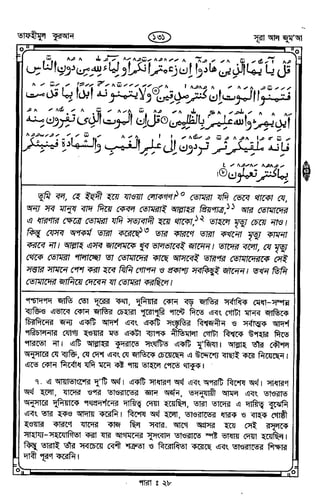 তাফহীমুল কুরআন
১৩১
সূরা আল জুমু'আ
قُلْ يٰٓاَيُّهَا الَّذِيْنَ هَادُوْٓا اِنْ زَعَمْتُمْ اَنَّكُمْ اَوْلِيَآءُ لِلّٰهِ مِنْ دُوْنِ النَّاسِ
فَتَمَنَّوُا الْمَوْتَ اِنْ كُنْتُمْ صٰدِقِيْنَ ۞ وَلَا يَتَمَنَّوْنَهٗٓ اَبَدًۢا بِمَا قَدَّمَتْ
اَيْدِيْهِمْ وَاللّٰهُ عَلِيْمٌۢ بِالظّٰلِمِيْنَ ۞ قُلْ اِنَّ الْمَوْتَ الَّذِيْ تَفِرُّوْنَ مِنْهُ
فَاِنَّهٗ مُلٰقِيْكُمْ ثُمَّ تُرَدُّوْنَ اِلٰى عٰلِمِ الْغَيْبِ وَالشَّهَادَةِ فَيُنَبِّئُكُمْ
بِمَا كُنْتُمْ تَعْمَلُوْنَ ۞
তুমি বল, হে ইহুদী হয়ে যাওয়া লোকগণ!১০ তোমরা যদি ভেবে থাকো যে,
অন্য সব মানুষ বাদ দিয়ে কেবল তোমরাই আল্লাহর প্রিয়পাত্র,১১ আর তোমাদের
এ ধারণার ক্ষেত্রে তোমরা যদি সত্যবাদী হয়ে থাকো,১২ তাহলে মৃত্যু চেয়ে নাও।
কিন্তু যেসব অপকর্ম তারা করেছে১৩ তার কারণে তারা কখনো মৃত্যু কামনা
করবে না। আল্লাহ এসব জালেমকে খুব ভালভাবেই জানেন। তাদের বলো, যে মৃত্যু
থেকে তোমরা পালাচ্ছো তা তোমাদের কাছে আসবেই তারপর তোমাদেরকে সেই
সত্তার সামনে পেশ করা হবে যিনি গোপন ও প্রকাশ্য সবকিছুই জানেন। তখন তিনি
তোমাদের জানিয়ে দেবেন যা তোমরা করছিলে।
পশ্চাদপদ জাতি তো দূরের কথা, দুনিয়ার কোন বড় জাতির সর্বাধিক মেধা-সম্পন্ন
ব্যক্তিও এভাবে কোন জাতির চেহারা পুরোপুরি পাল্টে দিতে এবং গোটা মানব জাতিকে
চিরদিনের জন্য একটি আদর্শ এবং একটি সংস্কৃতির বিশ্বজনীন ও সর্বাত্মক আদর্শ
পরিচালনার যোগ্য হওয়ার মত একটা ব্যাপক নীতিমালা গোটা বিশ্বকে উপহার দিতে
পারতো না। এটি আল্লাহর কুদরতে সংঘটিত একটি মু'জিযা। আল্লাহ তাঁর কৌশল
অনুসারে যে ব্যক্তি, যে দেশ এবং যে জাতিকে চেয়েছেন এ উদ্দেশ্যে বাছাই করে নিয়েছেন।
এতে কোন নির্বোধ যদি মনে কষ্ট পায় তাহলে পেতে থাকুক।
৭. এ আয়াতাংশের দু'টি অর্থ। একটি সাধারণ অর্থ এবং অপরটি বিশেষ অর্থ। সাধারণ
অর্থ হলো, যাদের ওপর তাওরাতের জ্ঞান অর্জন, তদনুযায়ী আমল এবং তাওরাত
অনুসারে দুনিয়াকে পথপ্রদর্শনের দায়িত্ব দেয়া হয়েছিল, তারা তাদের এ দায়িত্ব বুঝেনি
এবং তার হকও আদায় করেনি। বিশেষ অর্থ হলো, তাওরাতের ধারক ও বাহক গোষ্ঠী
হওয়ার কারণে যাদের কাজ ছিল সবার আগে অগ্রসর হয়ে সেই রসূলকে
সাহায্য-সহযোগিতা করা যার আগমনের সুসংবাদ তাওরাতে স্পষ্ট ভাষায় দেয়া হয়েছিল।
কিন্তু তারাই তাঁর সবচেয়ে বেশী শত্রুতা ও বিরোধিতা করেছে এবং তাওরাতের শিক্ষার
দাবী পূরণ করেনি।
পারা : ২৮